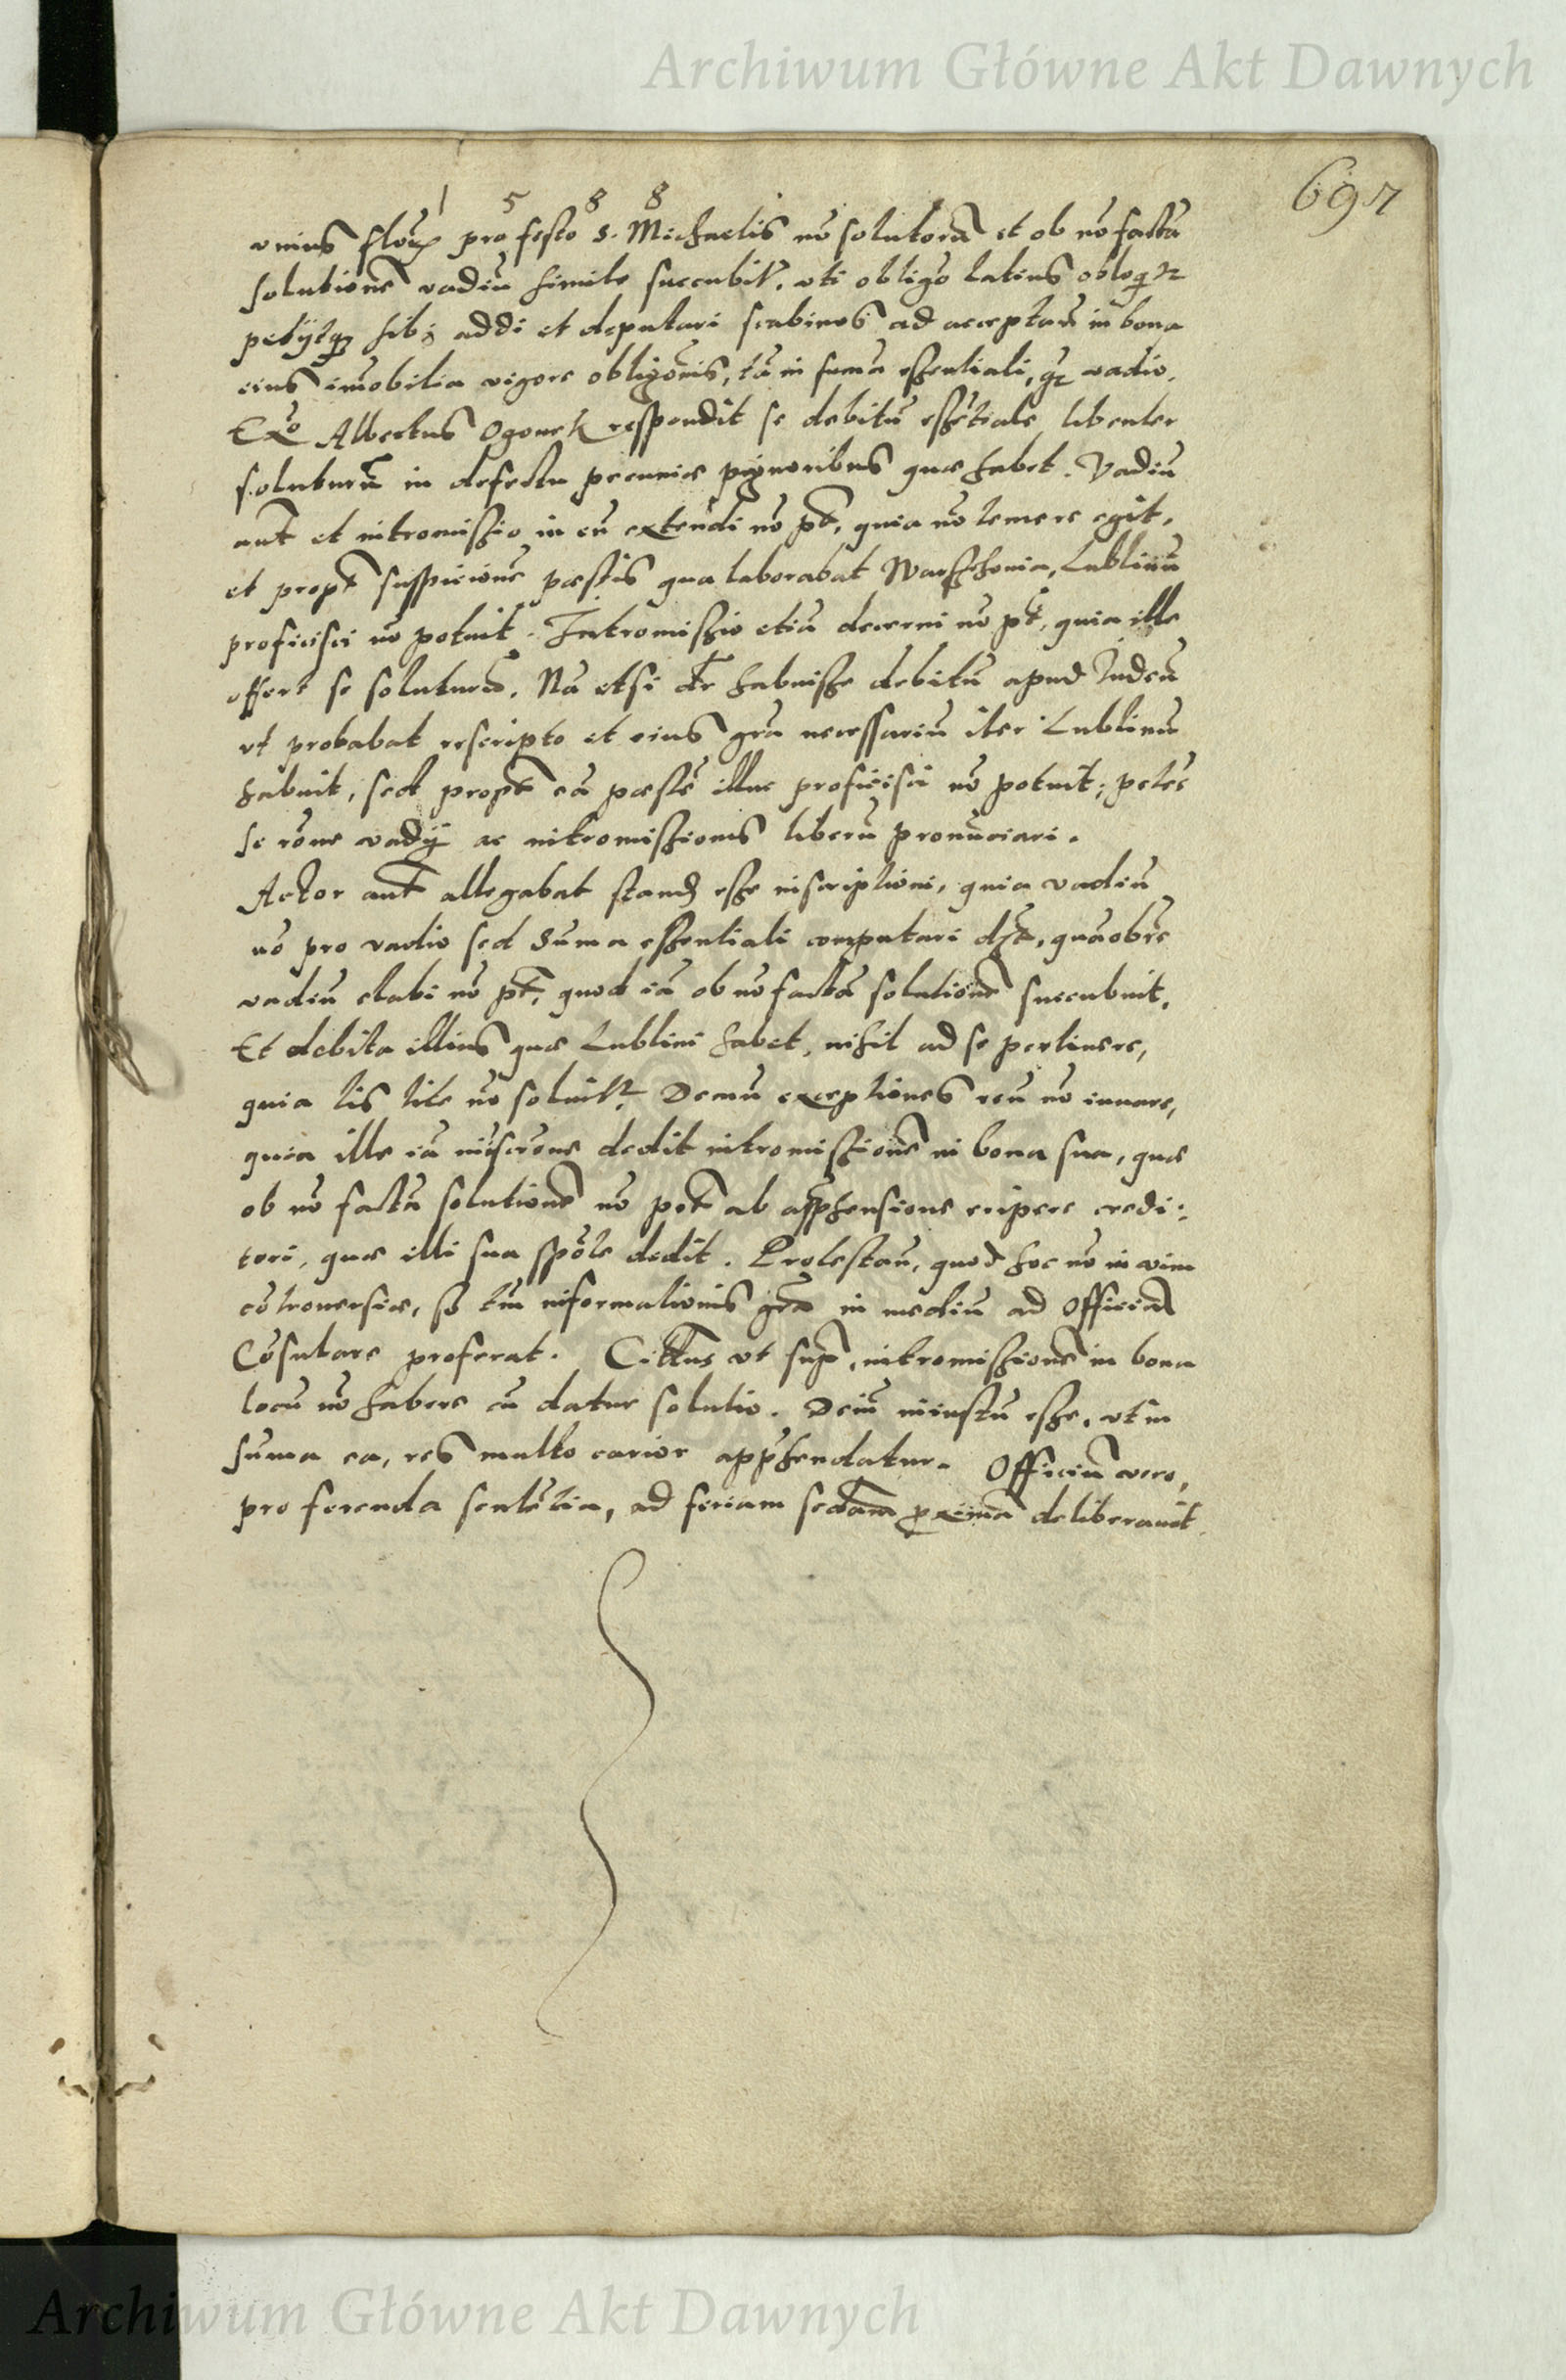 Archiwum Główne Akt Dawnych
697
1 5 8 8
unius floꝝ pro festo S. Michaelis nō solutorū et ob nō factā
solutionē vadiū simile succubit, uti obligo latius obloqr
petÿtqꝫ sibi addi et deputari scabinos ad acceptan̄ in bona
eius imōbilia vigore obligōnis, tā in sum̄a essentiali, qꝫ vadio.
Exo Albertus Ogonek respondit se debitū essētiale libenter
soluturū in defectu pecuniæ pignoribus quæ habet. Vadiū
aut̄ et intromissio in eū extendi nō pt̄, quia nō temere egit,
et propt̄ suspicionē pæstis qua laborabat Warschovia, Lublinū
proficisci nō potuit. Intromissio etiā decerni nō pt̄, quia ille
offert se soluturū. Nā etsi dr̄ habuisse debitū apud Iudeū
ut probabat rescripto et eius grā necessariū iter Lublinū
habuit, sed propt̄ eā pæstē illuc proficisci nō potuit; petēs
se rōne vadÿ ac intromissionis liberū pronūciari.
Actor aut̄ allegabat stand esse inscriptioni, quia vadiū
nō pro vadio sed Summa essentiali computari dēt, quāobrē
vadiū elabi nō pt̄, quod iā ob nō factā solutionē succubuit.
Et debita illius quæ Lublini habet, nihil ad se pertinere,
quia lis lite nō soluitr. Demū exceptiones reū nō iuuare,
quia ille iā inscrōne dedit intromissionē in bona sua, quæ
ob nō factā solutionē nō pot̄ ab apphensione eripere credi:
tori, quæ illi sua spōte dedit. Protestan̄, quod hoc nō in vim
cōtrouersiæ, sꝫ tm̄ informationis grā in mediū ad Officiū
Cōsulare proferat. Citatus ut supᵃ, intromissionē in bona
locū nō habere cū datur solutio. Deiū iniustū esse, ut in
sum̄a ea, res multo carior apphendatur. Officiū vero,
pro ferenda sentētia, ad feriam sedam ꝓximā deliberauit.
Archiwum Główne Akt Dawnych